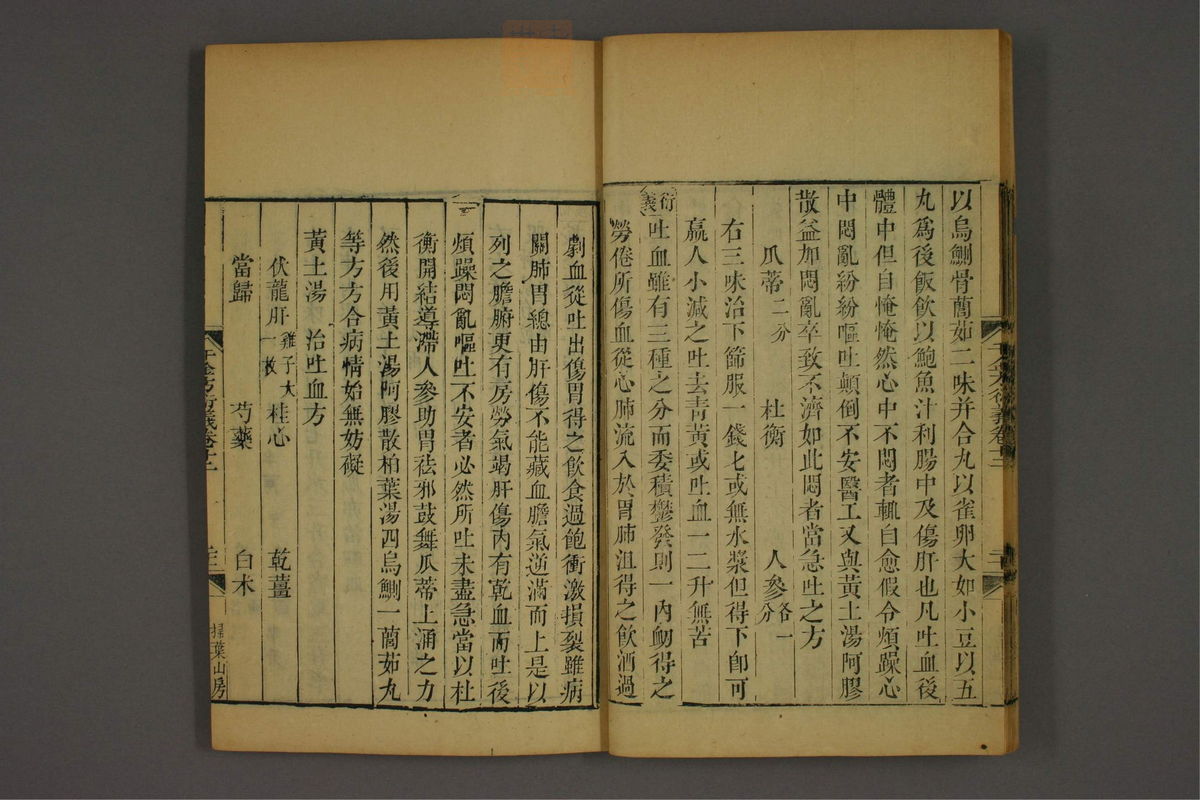 以烏鰂骨藘茹二味并合丸以雀卵大如小豆以五
丸爲後飯飮以鮑魚汁利腸中及傷肝也凡吐血後
體中但自惓惓然心中不悶者輒自愈假令煩躁心
中悶亂紛紛嘔吐顚倒不安醫工又與黃土湯阿膠
散益加悶亂卒致不濟如此悶者當急吐之方
瓜蒂二分 杜衡 人參各一分
右三味治下篩服一錢匕或無水漿但得下卽可
羸人小減之吐去靑黃或吐血一二升無苦
衍義 吐血雖有三種之分而委積鬱發則一內衂得之
勞倦所傷血從心肺流入於胃肺沮得之飮酒過
劇血從吐出傷胃得之飮食過飽衝激損裂雖病
關肺胃總由肝傷不能藏血膽氣逆滿而上是以
列之膽腑更有房勞氣竭肝傷內有乾血而吐後
煩躁悶亂嘔吐不安者必然所吐未盡急當以杜
衡開結導滯人參助胃祛邪鼓舞瓜蒂上涌之力
然後用黃土湯阿膠散柏葉湯四烏鰂一藘茹丸
等方方合病情始無妨礙
黃土湯 治吐血方
伏龍肝雞子大一枚 桂心 乾薑
當歸 芍藥 白朮
千金方衍義卷十二
掃葉山房